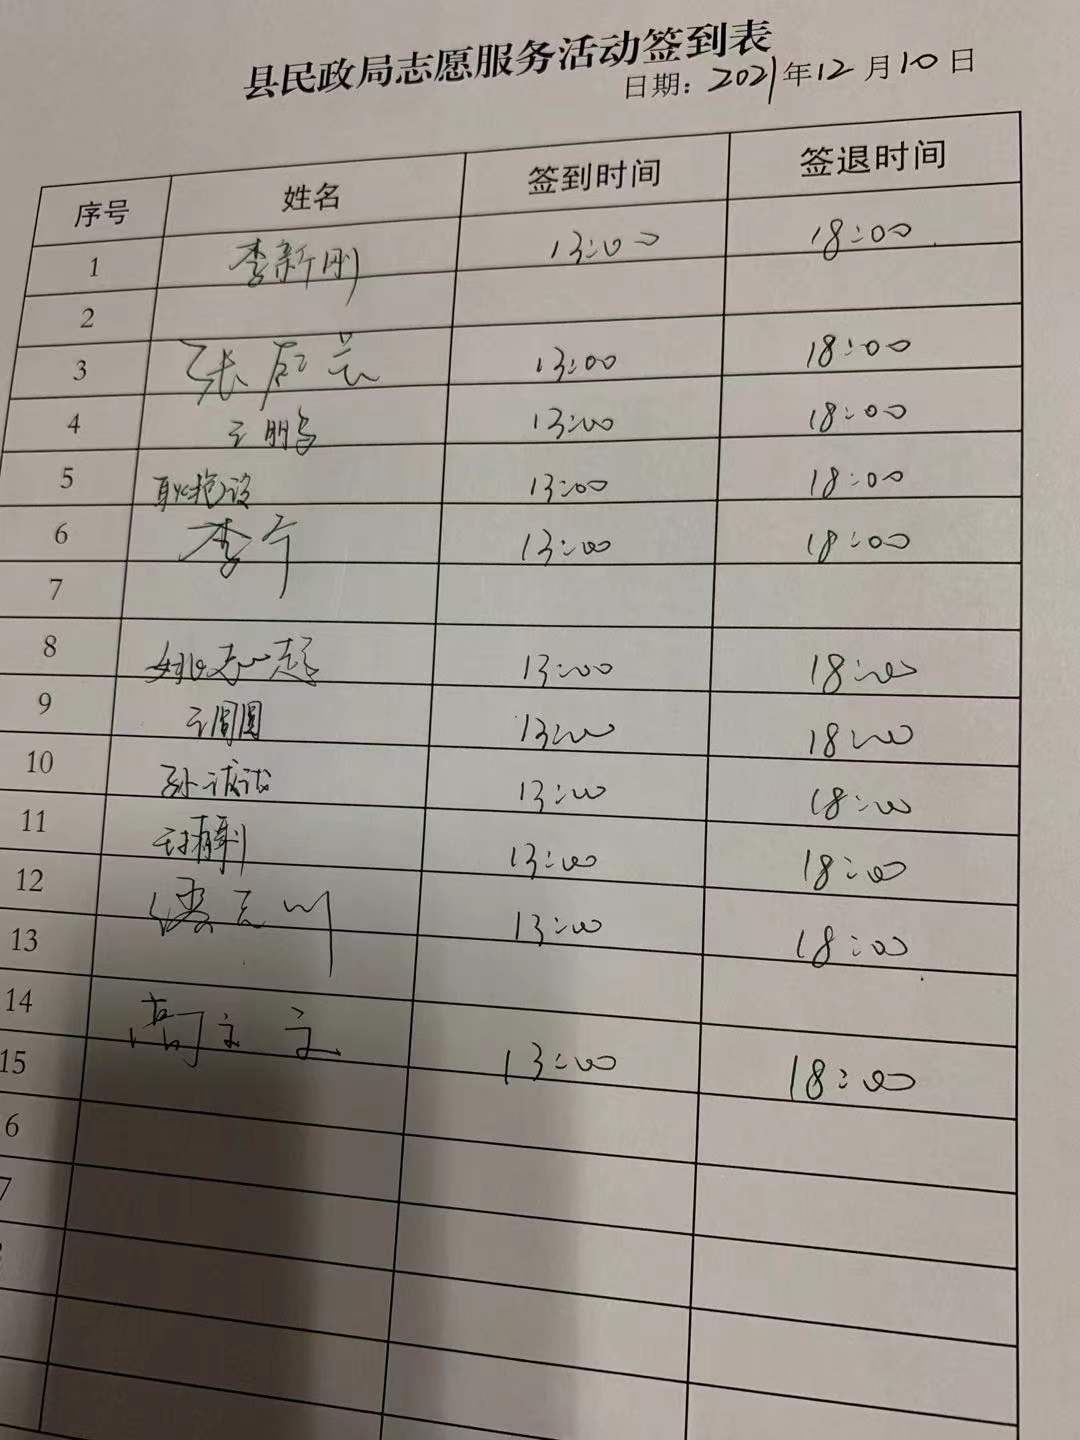 县民政局志愿服务活动签到表
日期：2021年12月10日
序号 姓名 签到时间 签退时间
1 李新刚 13:00 18:00
2
3 张 13:00 18:00
4 王鹏 13:00 18:00
5 耿艳 13:00 18:00
6 李宁 13:00 18:00
7
8 姚志起 13:00 18:00
9 王闻圆 13:00 18:00
10 孙 13:00 18:00
11 13:00 18:00
12 13:00 18:00
13
14 高文文 13:00 18:00
15
6
7